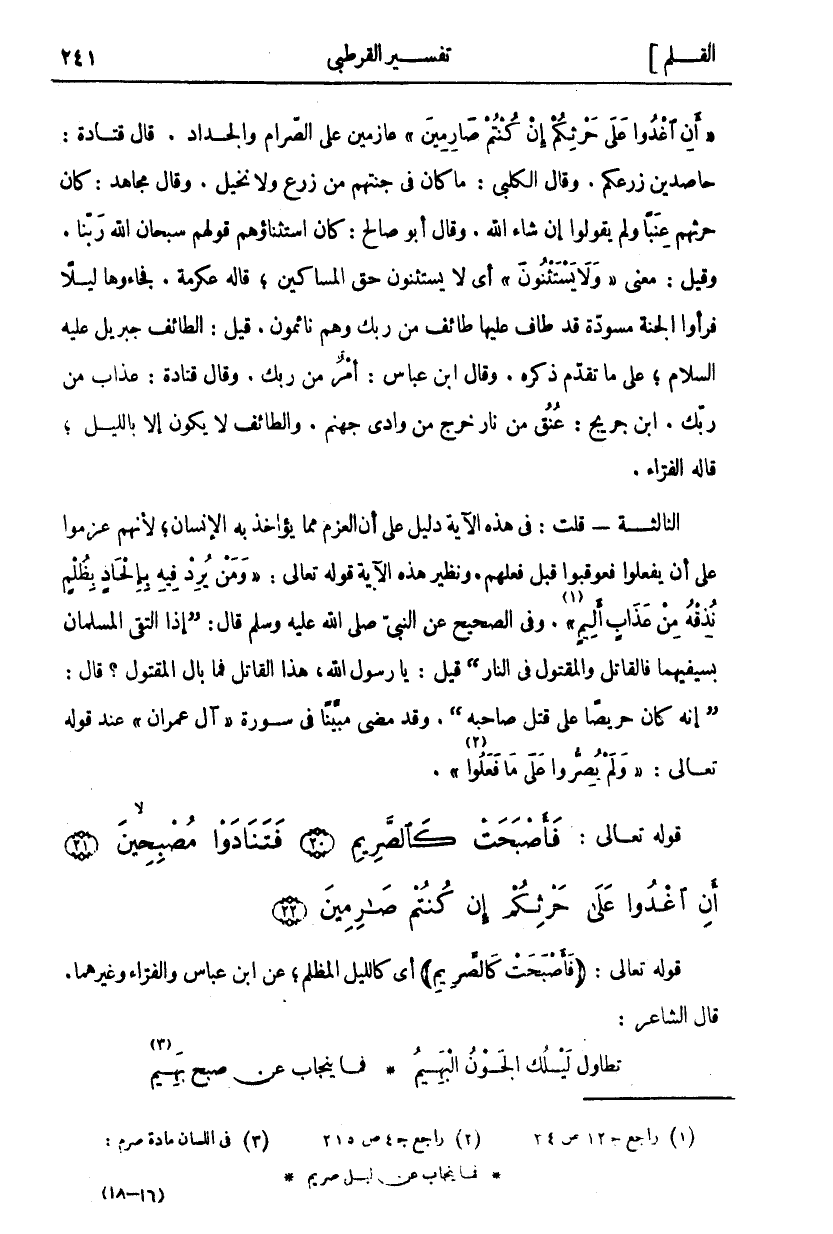 القلم] تفسير القرطبى ٢٤١
« أَنِ ٱغْدُوا عَلَى حَرْثِكُمْ إِنْ كُنْتُمْ صَارِمِينَ » عازمين على الصِّرام والجداد . قال قتادة :
حاصدين زرعكم . وقال الكلبى : ما كان فى جنتهم من زرع ولا نخيل . وقال مجاهد : كان
حرثهم عِنَبًا ولم يقولوا إن شاء الله . وقال أبو صالح : كان استثناؤهم قولهم سبحان الله رَبّنا .
وقيل : معنى « وَلَا يَسْتَثْنُونَ » أى لا يستثنون حق المساكين ؛ قاله عكرمة . فجاءوها ليـلًا
فرأوا الجنة مسودّة قد طاف عليها طائف من ربك وهم نائمون . قيل : الطائف جبريل عليه
السلام ؛ على ما تقدّم ذكره . وقال ابن عباس : أَمْرٌ من ربك . وقال قتادة : عذاب من
ربّك . ابن جريج : عُنُق من نار خرج من وادى جهنم . والطائف لا يكون إلا بالليـل ؛
قاله الفرّاء .
الثالثـــة — قلت : فى هذه الآية دليل على أن العزم مما يؤاخذ به الإنسان؛ لأنهم عزموا
على أن يفعلوا فعوقبوا قبل فعلهم. ونظير هذه الآية قوله تعالى : « وَمَنْ يُرِدْ فِيهِ بِإِلْحَادٍ بِظُلْمٍ
نُذِقْهُ مِنْ عَذَابٍ أَلِيمٍ(١)» . وفى الصحيح عن النبىّ صلى الله عليه وسلم قال: ”إذا التقى المسلمان
بسيفيهما فالقاتل والمقتول فى النار“ قيل : يا رسول الله، هذا القاتل فما بال المقتول ؟ قال :
” إنه كان حريصًا على قتل صاحبه “ . وقد مضى مبيَّنًا فى سورة « آل عمران » عند قوله
تعـالى : « وَلَمْ يُصِرُّوا عَلَى مَا فَعَلُوا(٢) » .
قوله تعـالى : فَأَصْبَحَتْ كَٱلصَّرِيمِ ﴿٢٠﴾ فَتَنَادَوْا مُصْبِحِينَۙ ﴿٢١﴾
أَنِ ٱغْدُوا عَلَىٰ حَرْثِكُمْ إِن كُنتُمْ صَـٰرِمِينَ ﴿٢٢﴾
قوله تعالى : ﴿فَأَصْبَحَتْ كَالصَّرِيمِ﴾ أى كالليل المظلم؛ عن ابن عباس والفرّاء وغيرهما.
قال الشاعر :
تطاول لَيْـلُك الجَوْنُ الْبَهِيمُ * فمـا ينجاب عن صبح بَهِيم(٣)
(١) راجع ج١٢ ص ٣٤ (٢) راجع ج٤ ص ٢١٥ (٣) فى اللسان مادة صرم :
* فما ينجاب عن ليـل صريم *
(١٦-١٨)